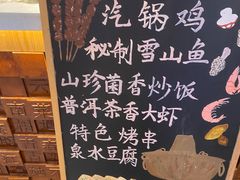 汽锅鸡
秘制雪山鱼
山珍菌香炒饭
普洱茶香大虾
特色烤串
泉水豆腐